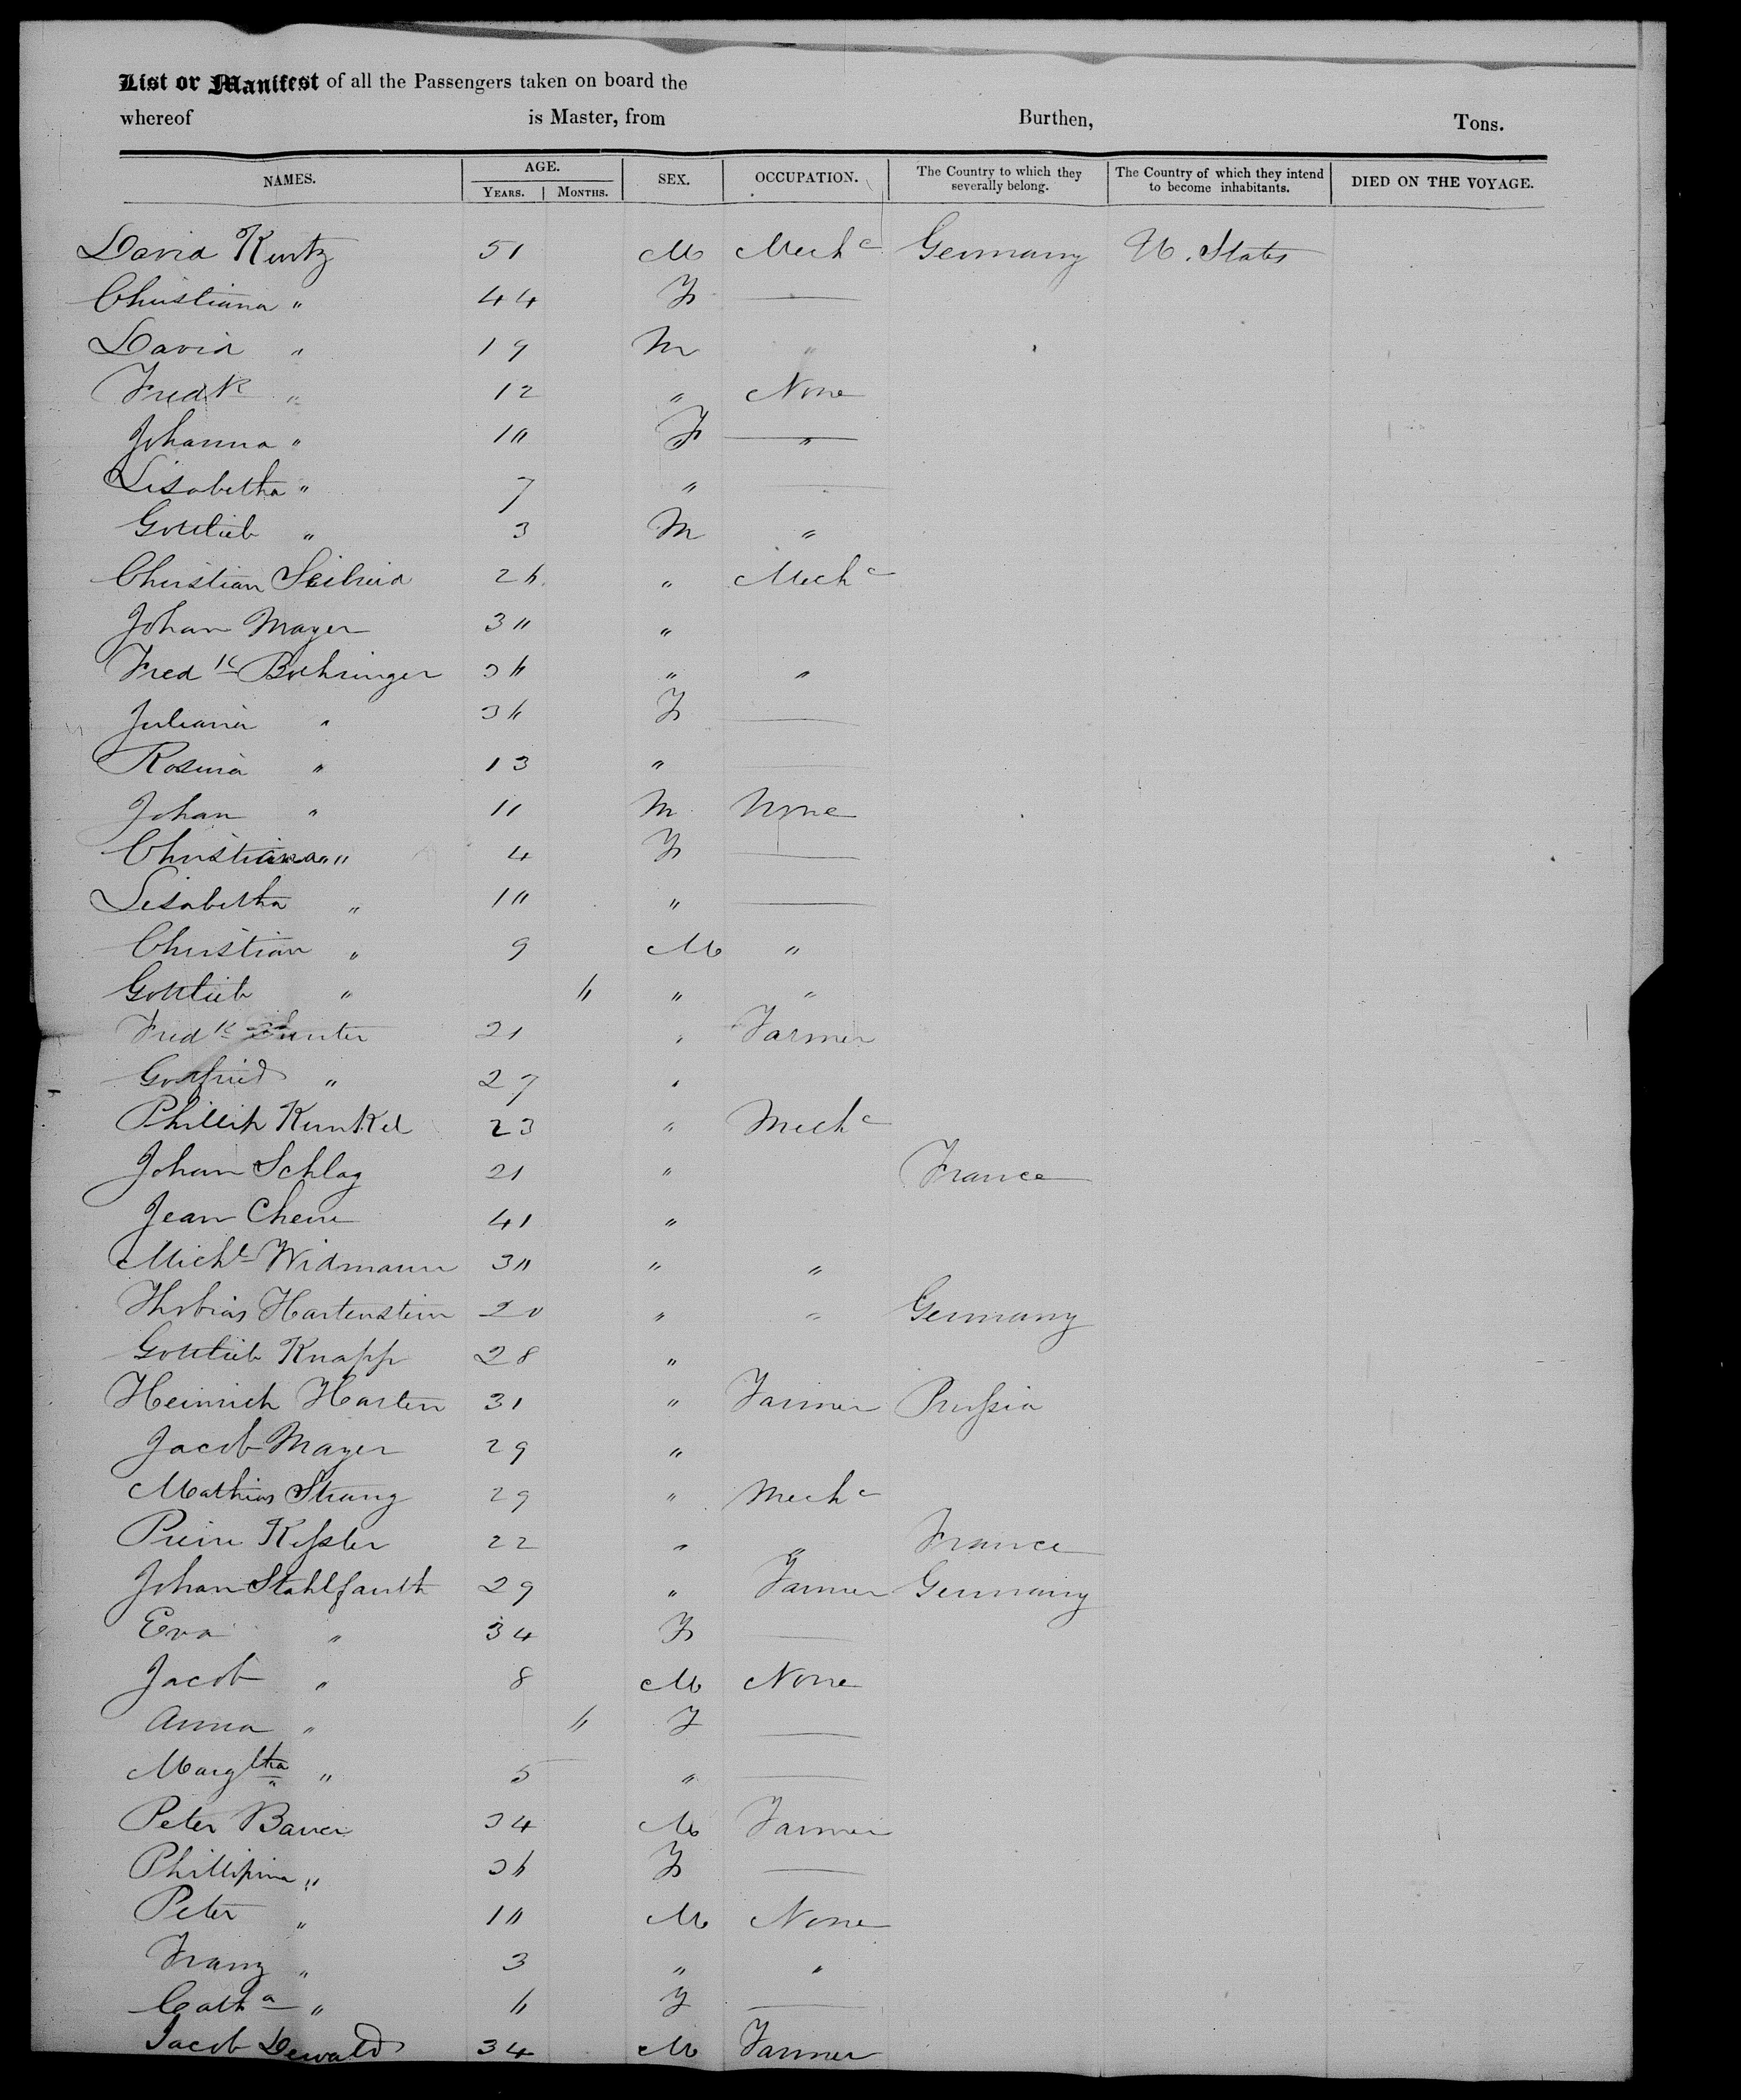 List or Manifest of all the Passengers taken on board the
whereof is Master, from Burthen, Tons.
NAMES. AGE. YEARS. MONTHS. SEX. OCCUPATION. The Country to which they severally belong. The Country of which they intend to become inhabitants. DIED ON THE VOYAGE.
David Kurtz 51 M Mechc Germany U. States
Christiana " 44 F —
David " 19 M "
Fredk " 12 " None
Johanna " 10 F — "
Lisabetha " 7 " —
Gottlieb " 3 M "
Christian Seibrid 26 " Mechc
Johan Mayer 30 "
Fredk Boehringer 36 " "
Juliana " 36 F —
Rosina " 13 " —
Johan " 11 M None
Christiana " 4 F —
Lisabetha " 10 " —
Christian " 9 M "
Gottlieb " 6 " "
Fredk 21 " Farmer
Gottfried " 27 "
Phillip Kunkel 23 " Mechc
Johan Schlag 21 " France
Jean 41 "
Michl Widmann 30 " "
Thobias Hartenstein 20 " " Germany
Gottlieb Knapp 28 "
Heinrich Harten 31 " Farmer Prussia
Jacob Mayer 29 "
Mathias Strang 29 " Mechc
Pierre Kessler 22 " " France
Johan Stahlfauth 29 " Farmer Germany
Eva " 34 F —
Jacob " 8 M None
Anna " 6 F —
Margtha " 5 " —
Peter Bauer 34 M Farmer
Phillipina " 36 F —
Peter " 10 M None
Franz " 3 " "
Catha " 6 F —
Jacob Dewald 34 M Farmer